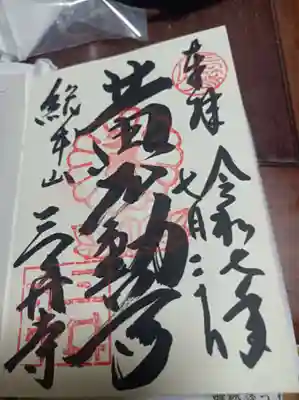 奉拝
令和七年
七月二 日
黄不動尊
総本山
三井寺